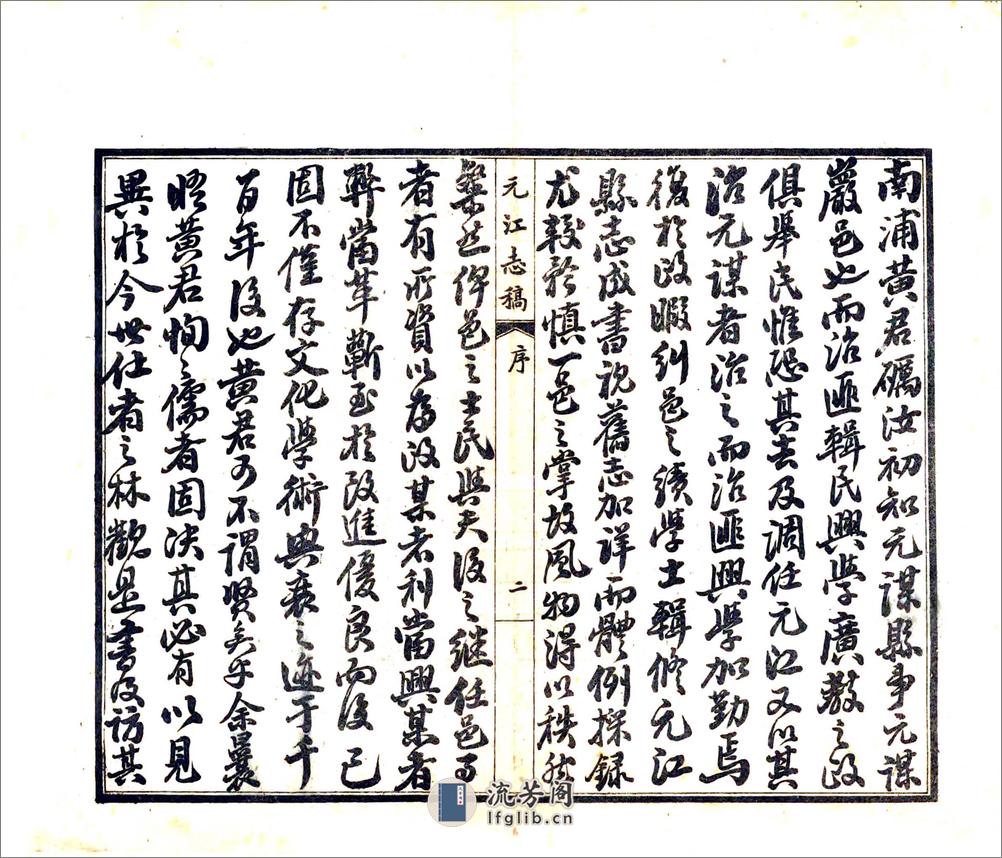 南浦黃君礪汝初知元謀縣事元謀
嚴邑也而治匪輯民興學廣教之政
俱舉民惟恐其去及調任元江又以其
治元謀者治之而治匪興學加勤焉
復於政暇糾邑之績學士輯修元江
縣志成書視舊志加詳而體例採錄
尤較矜慎一邑之掌故風物得以秩然
元江志稿
序
二
粲然俾邑之士民與夫後之繼任邑
者有所資以為政某者利當興某者
弊當革蘄至於改進優良而後已
固不僅存文化學術興衰之迹于千
百年後也黃君可不謂賢矣乎余曩
晤黃君恂恂儒者固決其必有以見
異於今世仕者之林觀是書及訪其
流芳阁
lfglib.cn